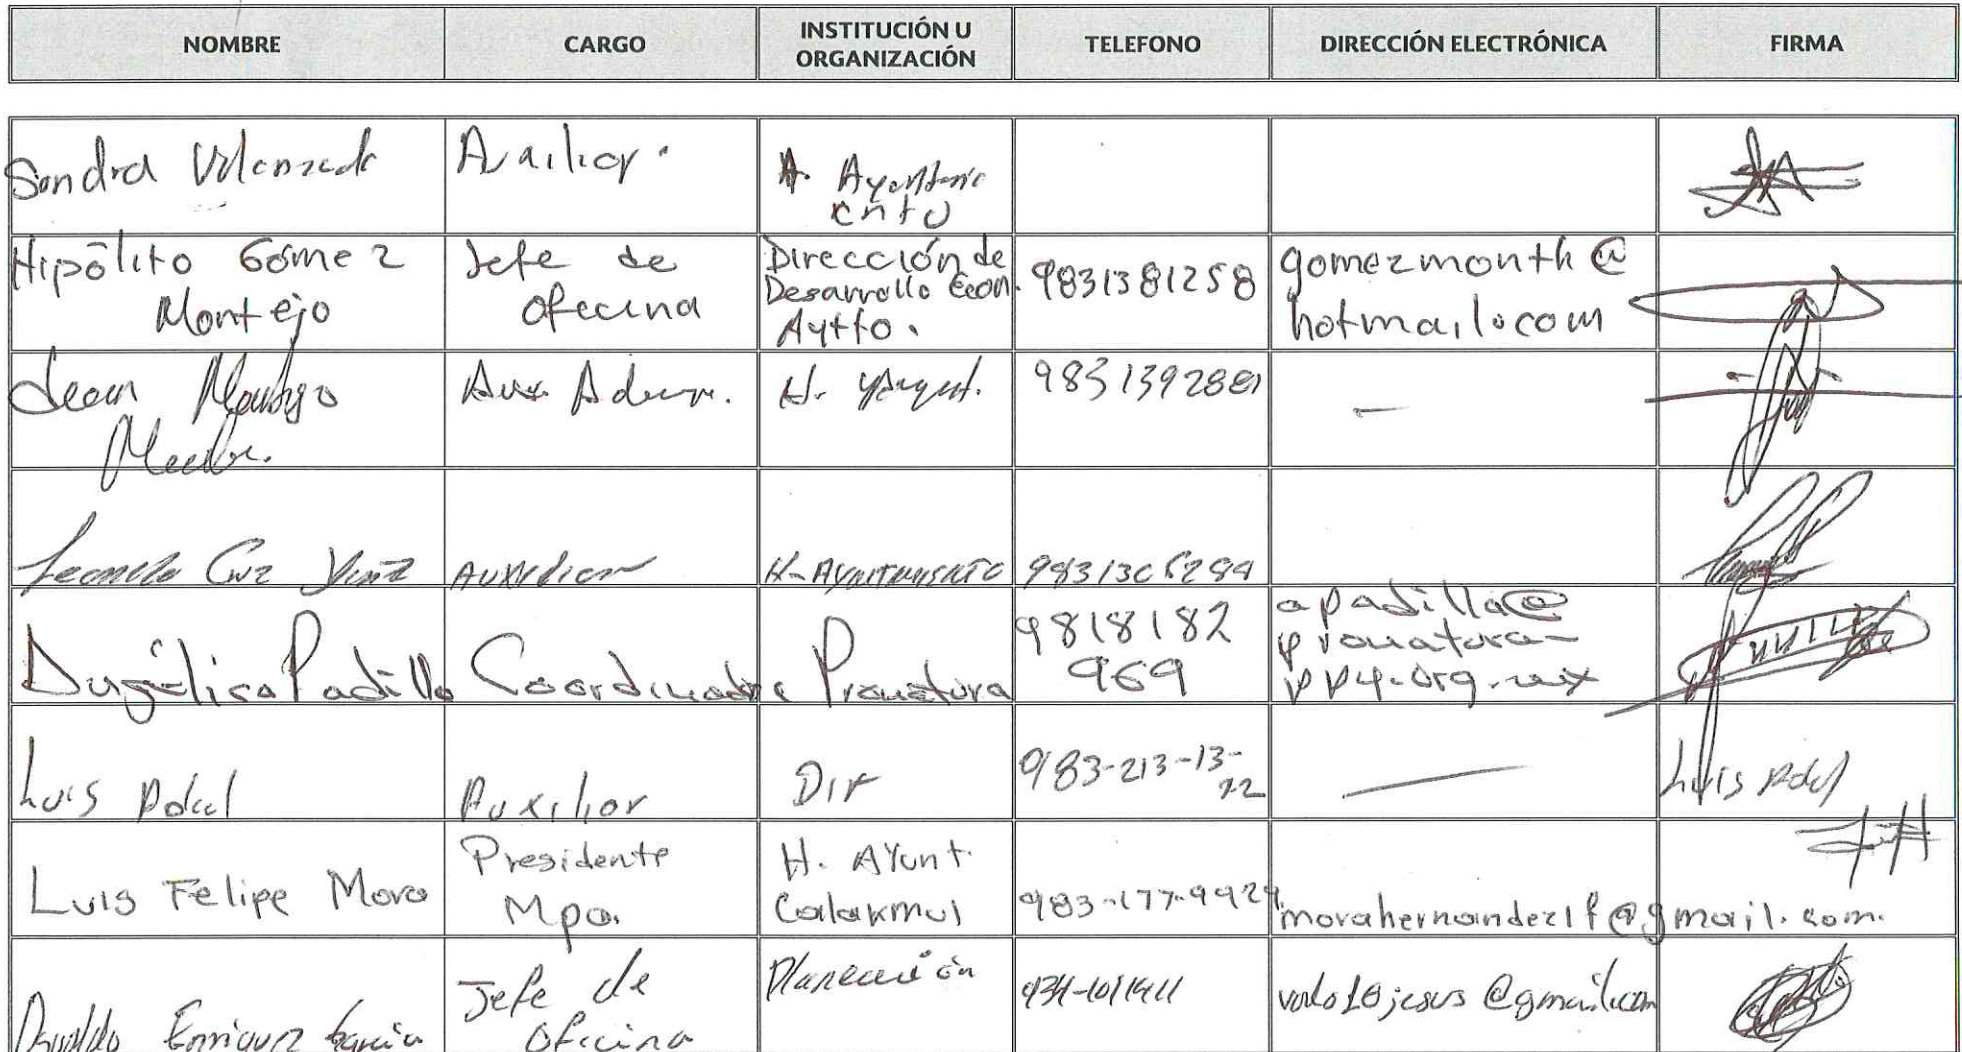 NOMBRE CARGO INSTITUCIÓN U ORGANIZACIÓN TELEFONO DIRECCIÓN ELECTRÓNICA FIRMA
Sandra Auxiliar. H. Ayuntamiento
Hipólito Gómez Montejo Jefe de oficina Dirección de Desarrollo Econ. Aytto. 9831381258 gomezmonth@hotmail.com
Aux. Admin. H. 9831392881 —
Cruz Auxiliar H. Ayuntamiento
Angélica Padilla Coordinadora Pronatura 9818182969 apadilla@pronatura-ppy.org.mx
Luis Auxiliar Dif 983-213-13-22 — Luis
Luis Felipe Mora Presidente Mpa. H. Ayunt. Calakmul 983-177-9929 morahernandezlf@gmail.com.
Osvaldo Enriquez García Jefe de oficina Planeación @gmail.com